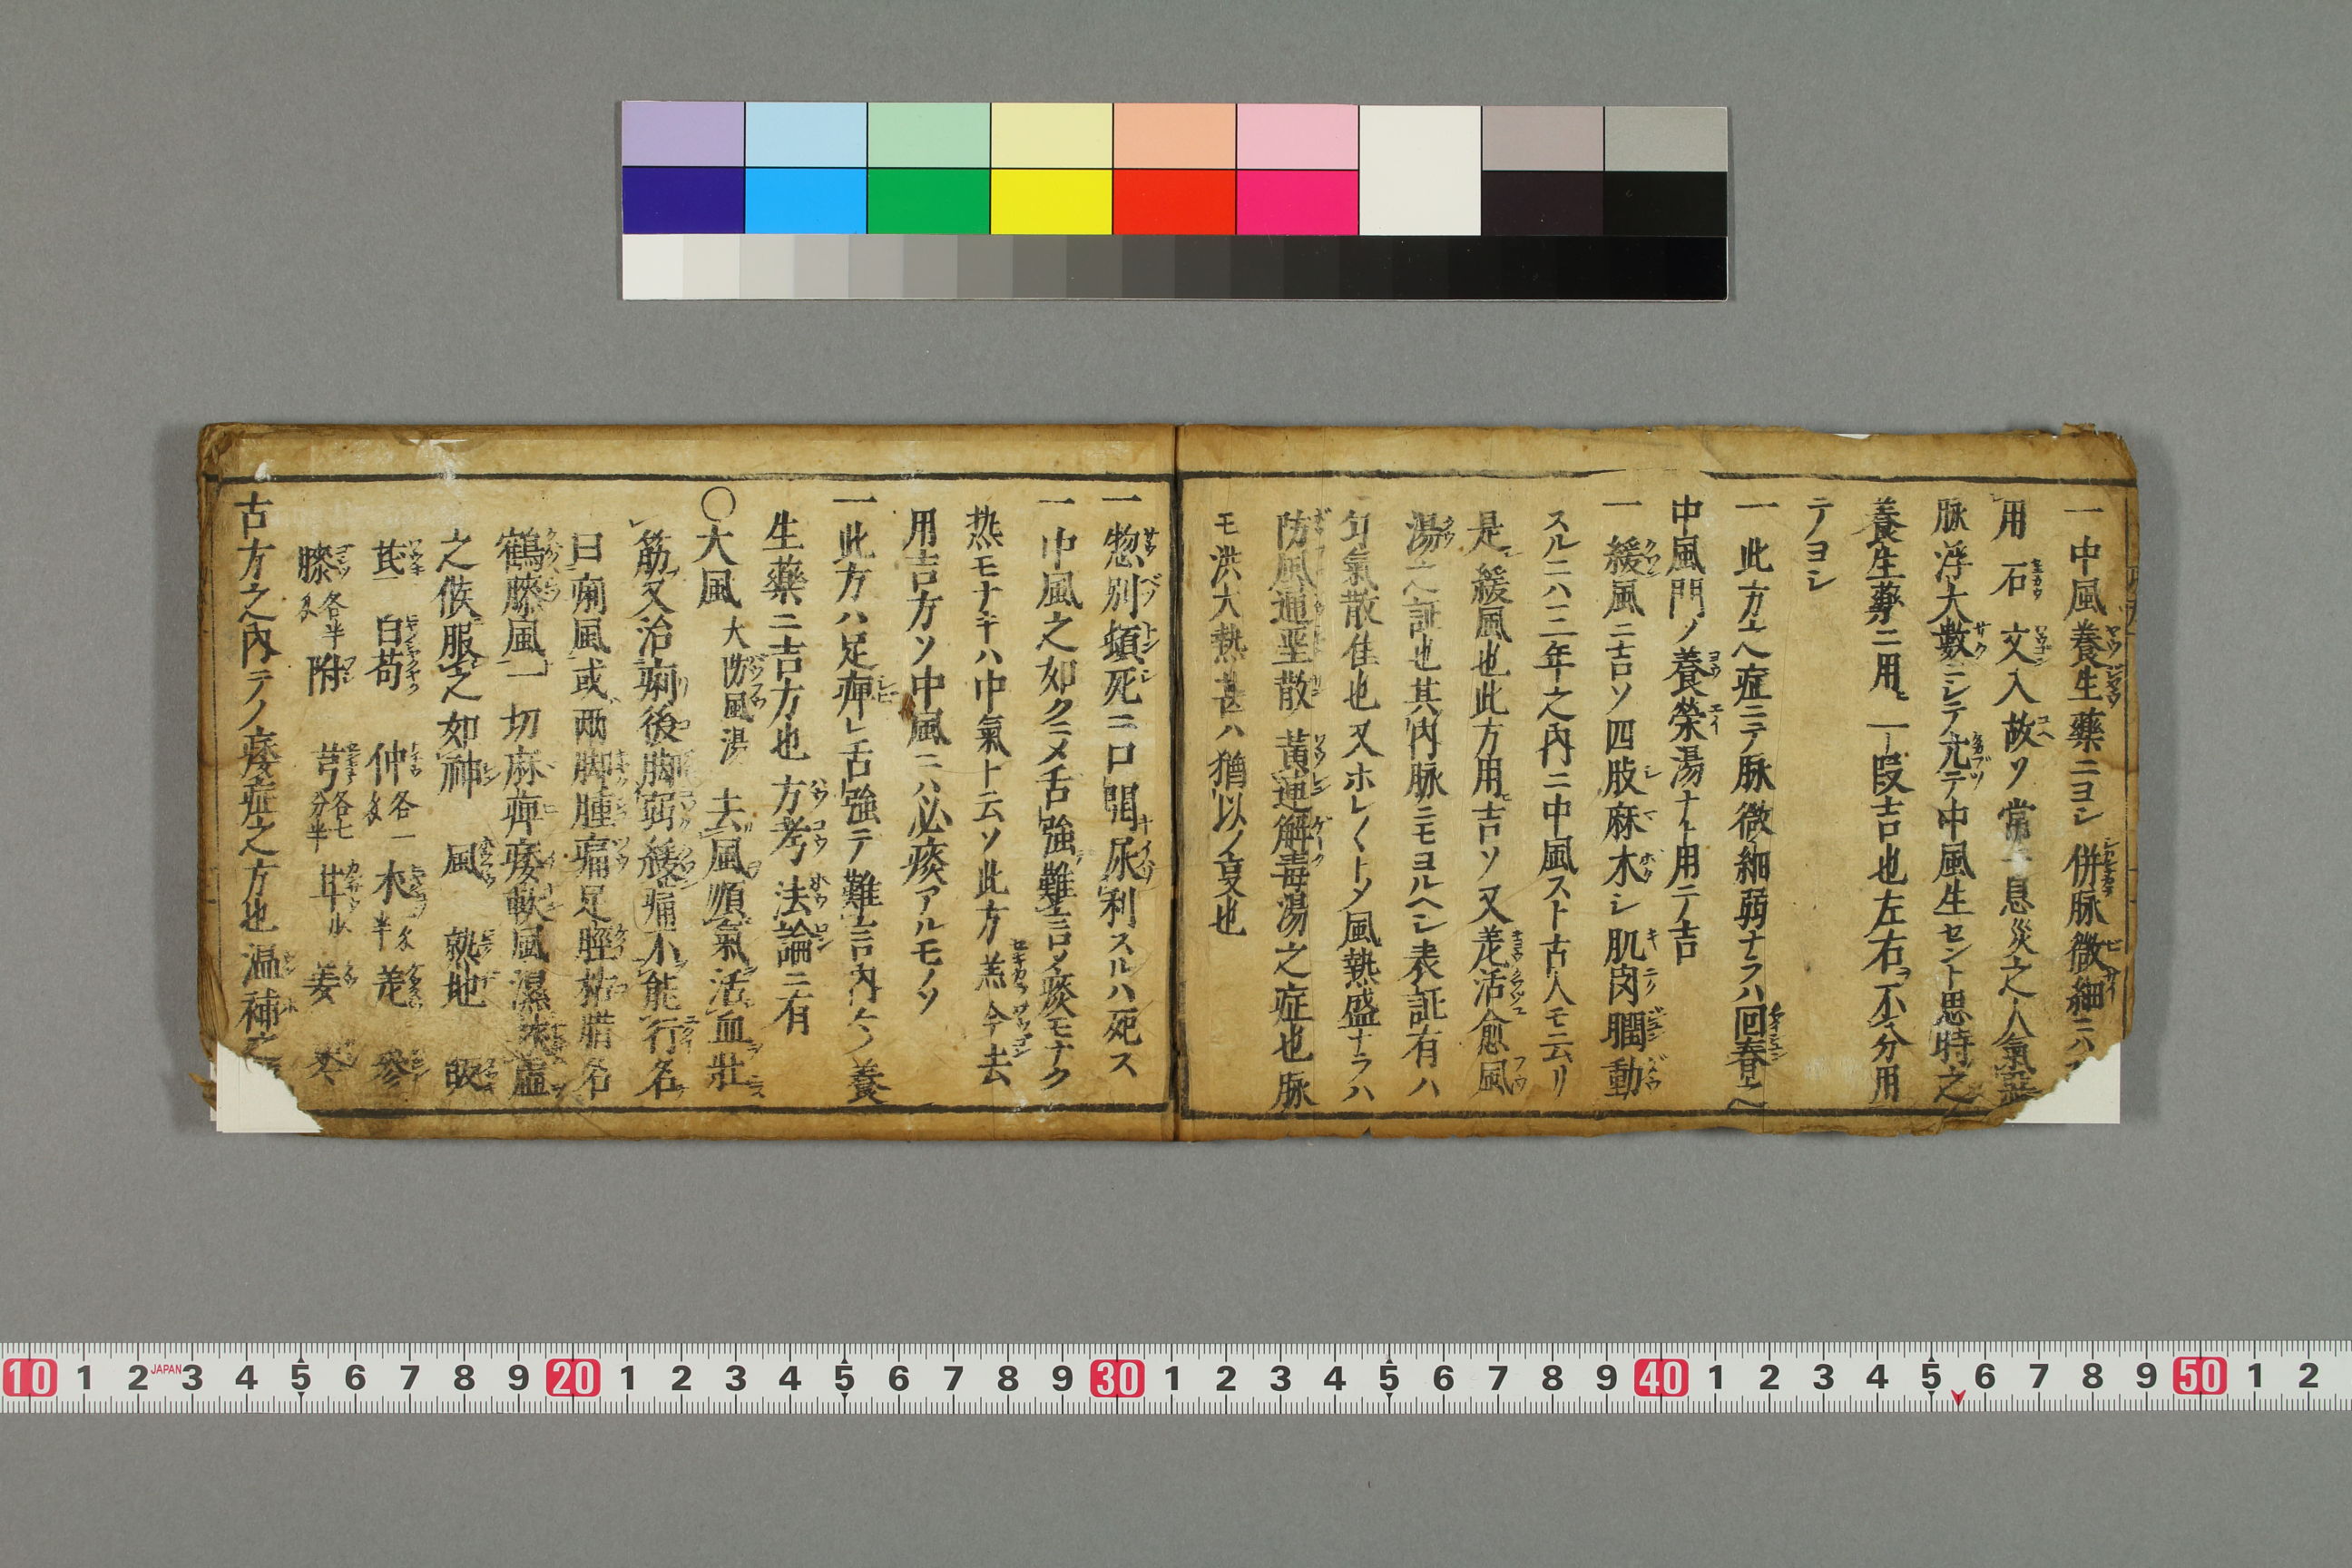 一中風養生藥ニヨシ併脉微細ニハ
用石文入故ソ常ニ息災之人氣
脉浮大數ニシテ尤テ中風生セント思時之
養生藥ニ用一段吉也左右ヲ不分用
テヨシ
一此方之症ニテ脉微細弱ナラハ回春之
中風門ノ養榮湯ナト用テ吉
一緩風ニ吉ソ四肢麻木シ肌肉瞤動
スルニハ三年之內ニ中風スト古人モ云リ
是緩風也此方用吉ソ又羌活愈風
湯之証也其內脉ニモヨルヘシ表証有ハ
匀氣散佳也又ホレ〱トメ風熱盛ナラハ
防風通圣散黃連解毒湯之症也脉
モ洪大熱甚ハ猶以ノ叓也
一惣別頓死ニ口開尿利スルハ死ス
一中風之如クニメ舌強難言ソ痰モナク
热モナキハ中氣ト云ソ此方羔今去
用吉方ソ中風ニハ必痰アルモノソ
一此方ハ足痺レ舌強テ難言內ケノ養
生藥ニ吉方也方考法論ニ有
○大風 大防風湯 去風順氣活血壯
筋又治痢後脚弱緩痛不能行名
曰痢風或兩脚腫痛足脛枯腊名
鶴膝風一切麻痺痿軟風濕挾虛
之候服之如神 風 熟地 皈
芪 白芍 仲各一 木半 羌 參
膝各半 附 芎各七分半 甘 姜 冬
古方之內テノ痿症之方也温補之
10 1 2 JAPAN 3 4 5 6 7 8 9 20 1 2 3 4 5 6 7 8 9 30 1 2 3 4 5 6 7 8 9 40 1 2 3 4 5 6 7 8 9 50 1 2